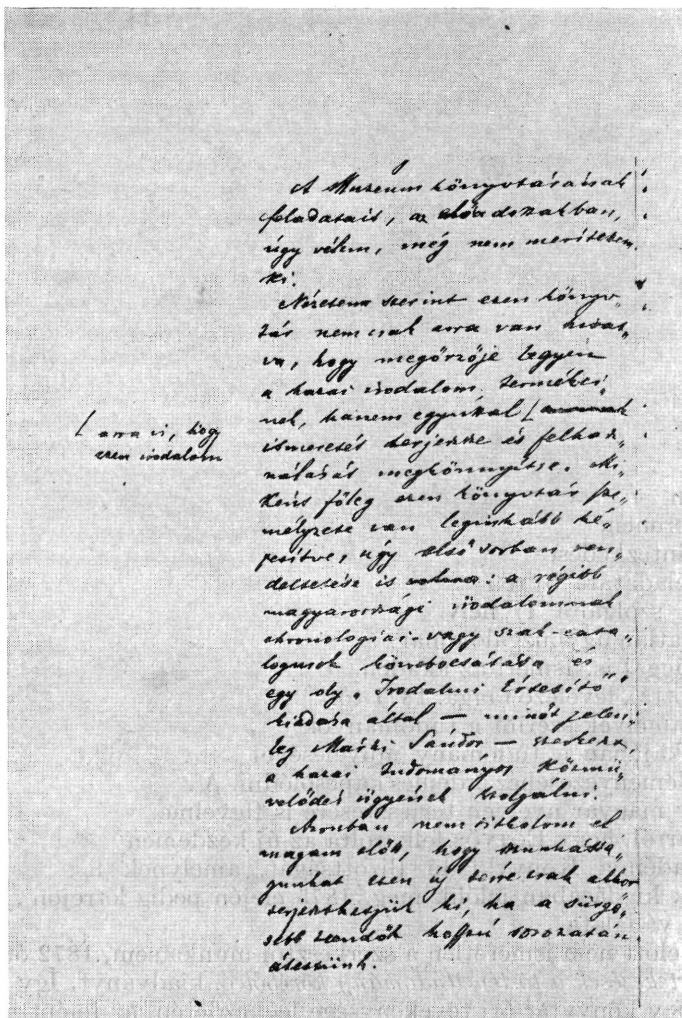 A Muzeum könyvtárának
feladatait, az előadottakban,
úgy vélem, még nem merítettem
ki.
Nézetem szerint ezen könyv-
tár nemcsak arra van hivat-
va, hogy megőrzője legyen
a hazai irodalom termékei-
nek, hanem egyúttal [
[ arra is, hogy
ezen irodalom
ismeretét terjessze és felhasz-
nálását megkönnyítse. Mi-
ként főleg ezen könyvtár sze-
mélyzete van leginkább ké-
pesítve, úgy első sorban ren-
deltetése is volna: a régibb
magyarországi irodalomnak
chronologiai- vagy szak-cata-
logusok közrebocsátása és
egy oly „Irodalmi Értesítő"
kiadása által — minőt jelen-
leg Márki Sándor — szerkeszt,
a hazai tudományos közmű-
velődés ügyének szolgálni.
Azonban nem titkolom el
magam előtt, hogy munkássá-
gunkat ezen új térre csak akkor
terjeszthetjük ki, ha a sürgő-
sebb teendők hosszú sorozatán
átestünk.